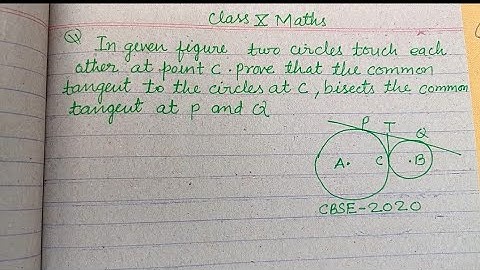 Class X Maths
Q In geven figure two circles touch each
other at point C. prove that the common
tangent to the circles at C, bisects the common
tangent at P and Q
P T Q
A. C .B
CBSE-2020